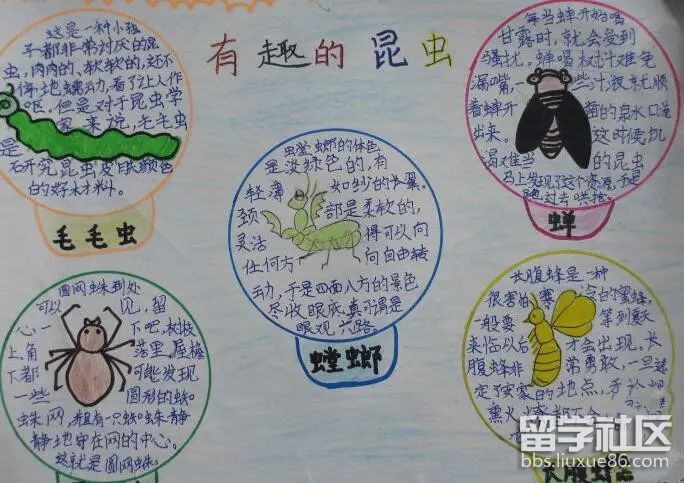 有趣的昆虫
这是一种小孩
子都非常讨厌的昆
虫，肉肉的、软软的，还不
停地蠕动，看了让人作
呕。但是对于昆虫学
家来说，毛毛虫
是
研究昆虫皮肤颜色
的好材料。
毛毛虫
每当蝉开始喝
甘露时，就会受到
骚扰。蝉喝树汁难免
漏嘴，些汁液就顺
着蝉开凿的泉水口淌
出来，这时候饥
渴难当的昆虫
马上发现了这个资源，于是
蝉
螳螂的体色
是淡绿色的，有
轻薄如纱的长翼。
颈部是柔软的，
灵活得可以向
任何方向自由转
动，于是四面八方的景色
尽收眼底，真可谓是
眼观六路。
螳螂
圆网蛛到处
可以见，留
心一下吧，树枝
上角落里，屋檐
下都可能发现
一些圆形的蛛
蛛网，并且有一只蜘蛛静
静地守在网的中心。
这就是圆网蛛。
长腹蜂是一种
很害怕寒冷的蜜蜂，
一般要等到夏天
来临以后才会出现。长
腹蜂非常勇敢，一旦选
定了安家的地点，
熏火烤都不会
留学社区
bbs.liuxue86.com